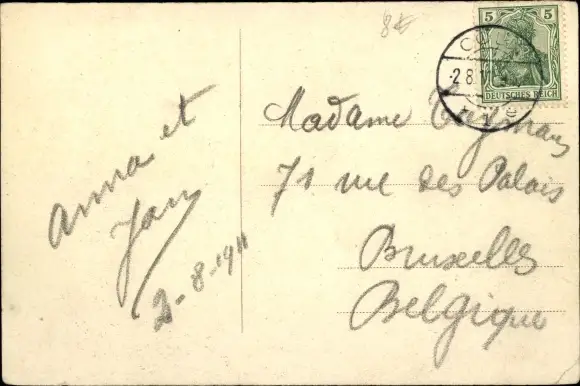 8€
5 5
DEUTSCHES REICH
28.VI
Anna et
Jan
2-8-1911
Madame
71 rue des Palais
Bruxelles
Belgique